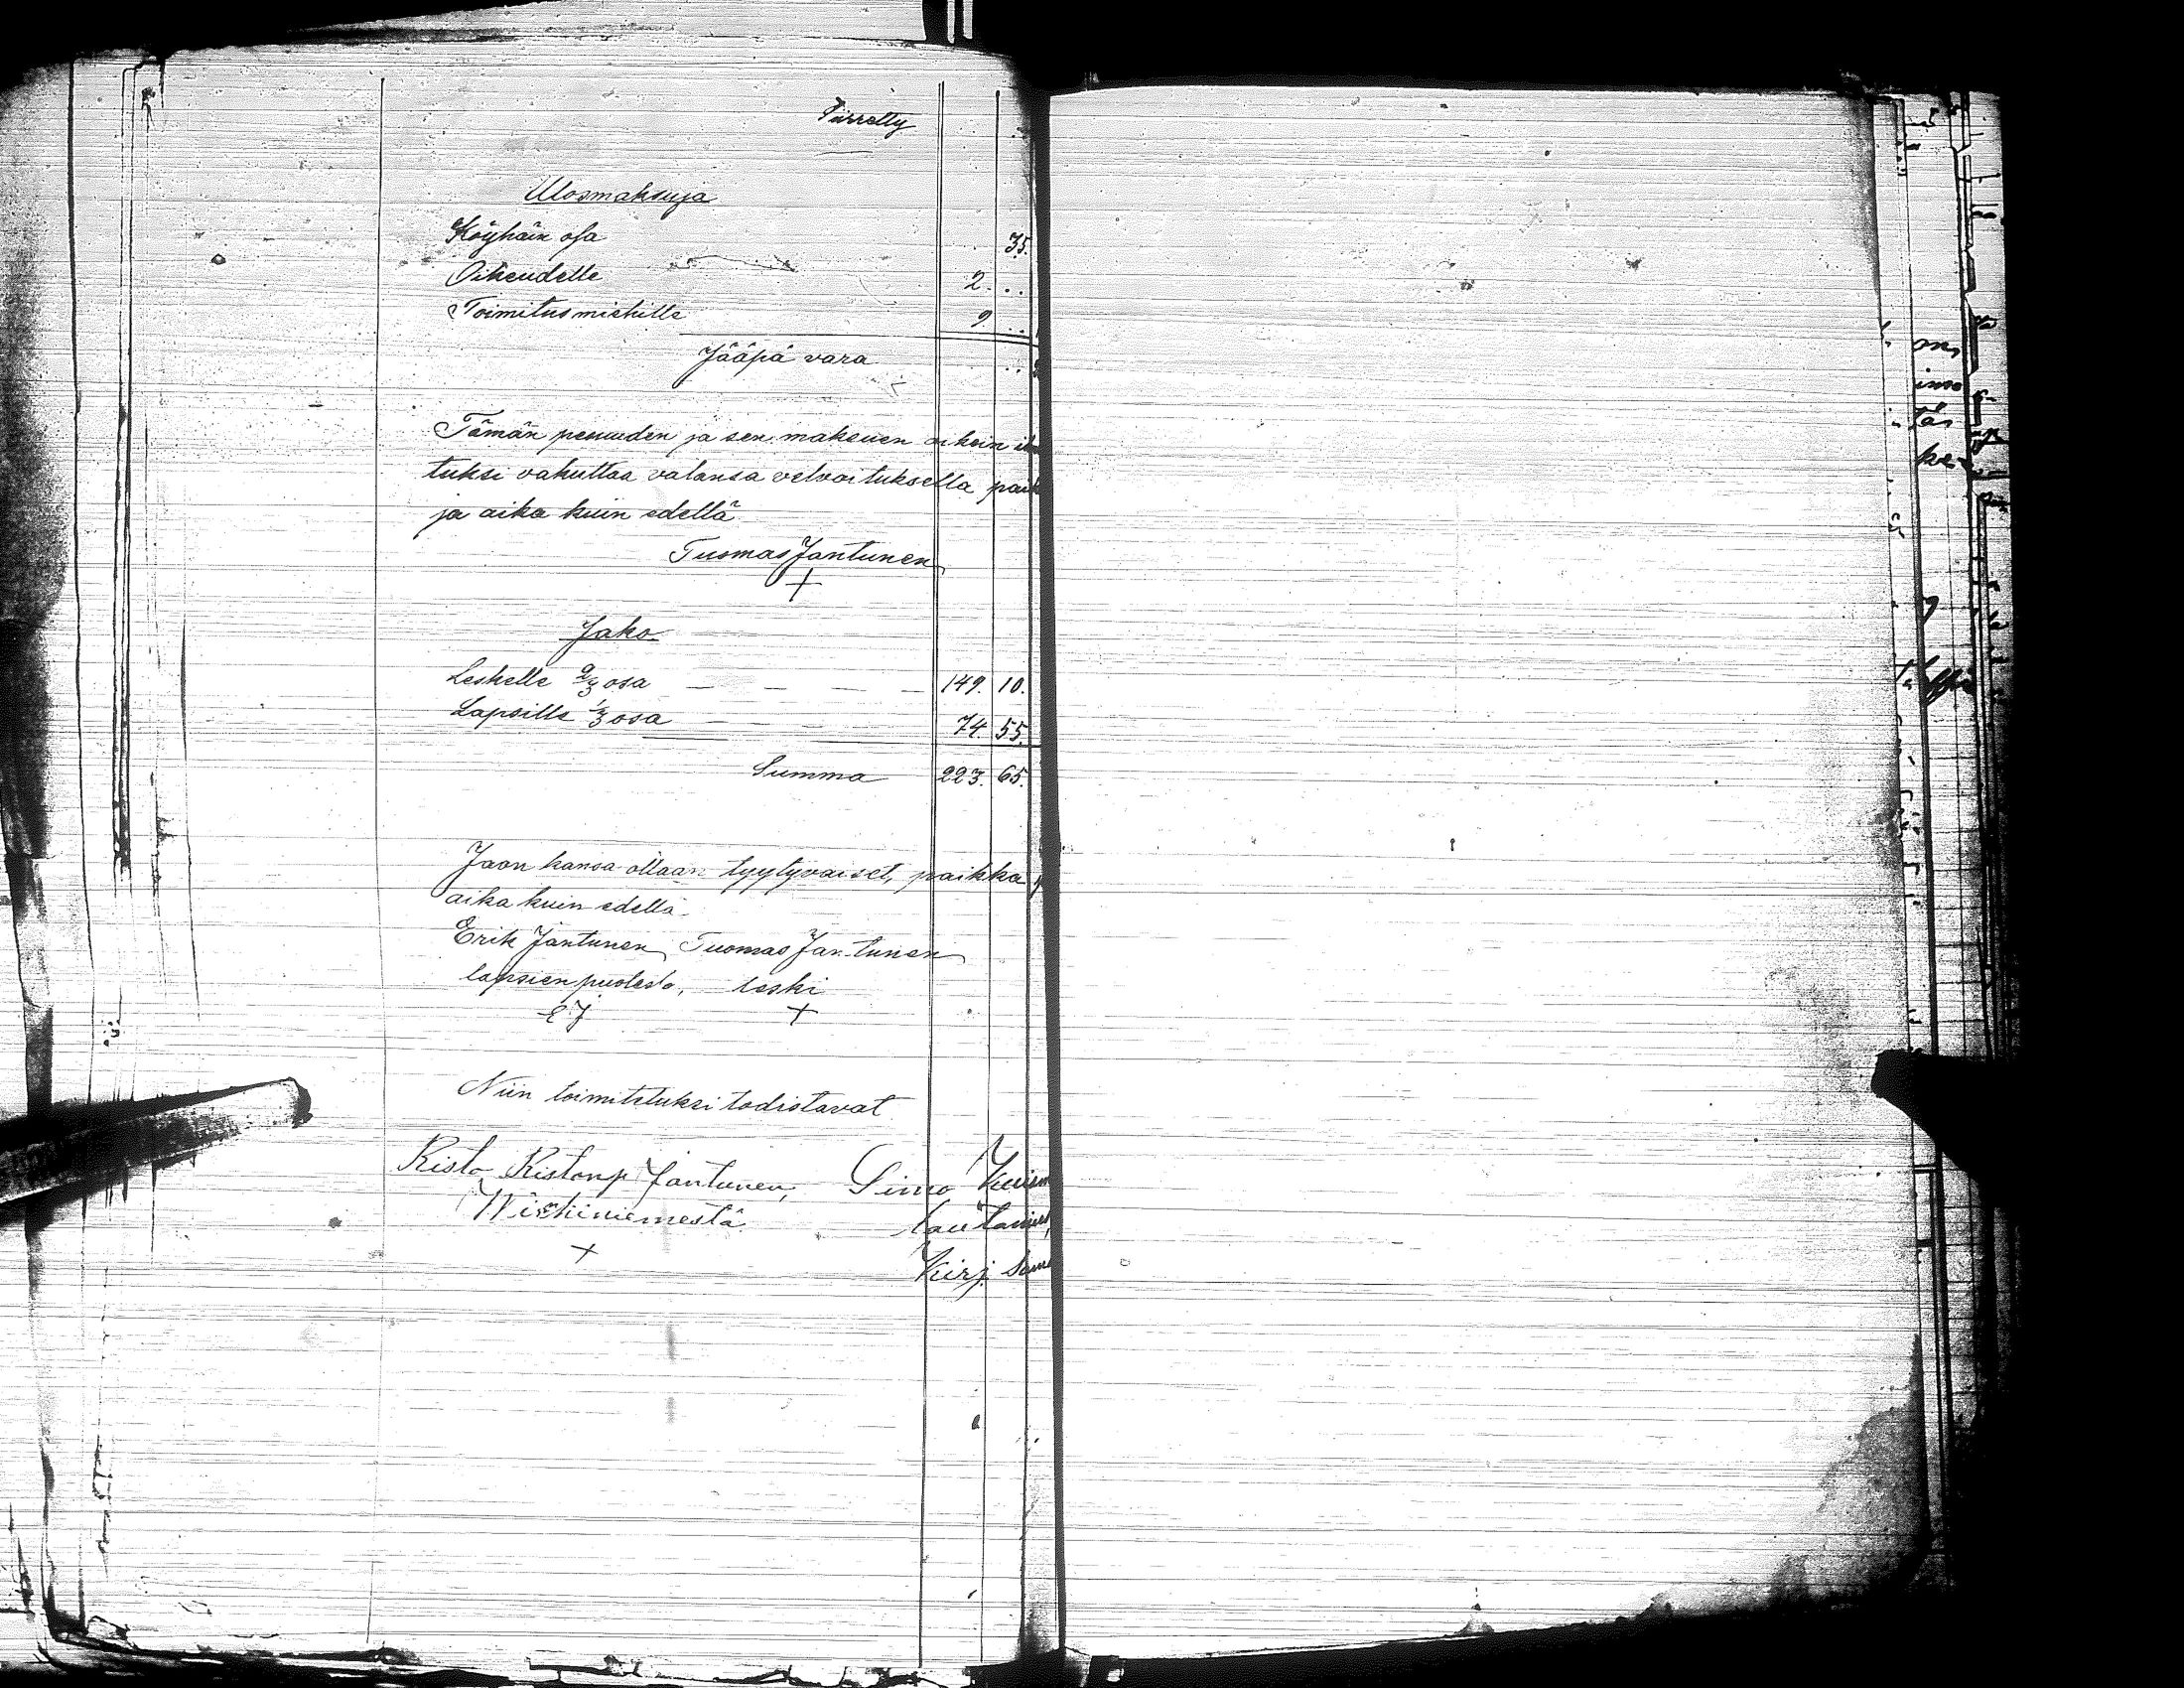 Siirretty
Ulosmaksuja
Köyhäin osa 35.
Oikeudelle 2. ..
Toimitusmiehille 9 ..
Jääpä vara ..
Tämän pesuuden ja sen maksuen oikein
tuksi vakuttaa valansa velvoituksella
ja aika kuin edellä
Tuomas Jantunen
+
Jako
Leskelle 2/3 osa — — — — 149. 10.
Lapsille 1/3 osa — — 74. 55.
Summa 223. 65.
Jaon kansa ollaan tyytyvaiset, paikka
aika kuin edellä
Erik Jantunen Tuomas Jantunen
lapsien puolesta, leski
EJ +
Niin toimitetuksi todistavat
Risto Ristonp Jantunen, Simo
Wiekiniemestä
+
Kirj